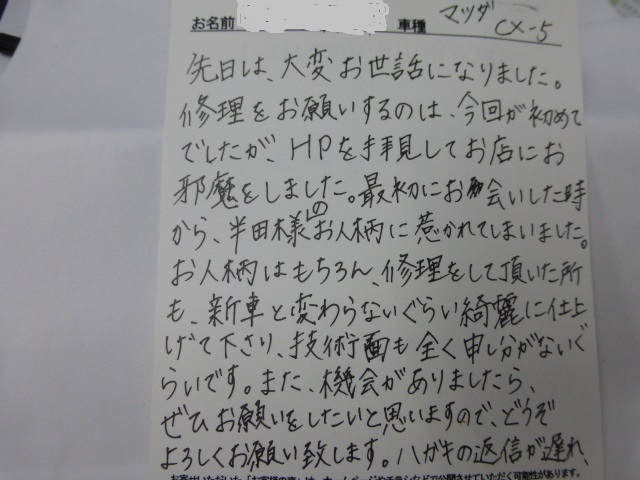 お名前 車種 マツダ CX-5
先日は、大変お世話になりました。
修理をお願いするのは、今回が初めて
でしたが、HPを拝見してお店にお
邪魔をしました。最初にお会いした時
から、半田様のお人柄に惹かれてしまいました。
お人柄はもちろん、修理をして頂いた所
も、新車と変わらないぐらい綺麗に仕上
げて下さり、技術面も全く申し分がないぐ
らいです。また、機会がありましたら、
ぜひお願いをしたいと思いますので、どうぞ
よろしくお願い致します。ハガキの返信が遅れ、